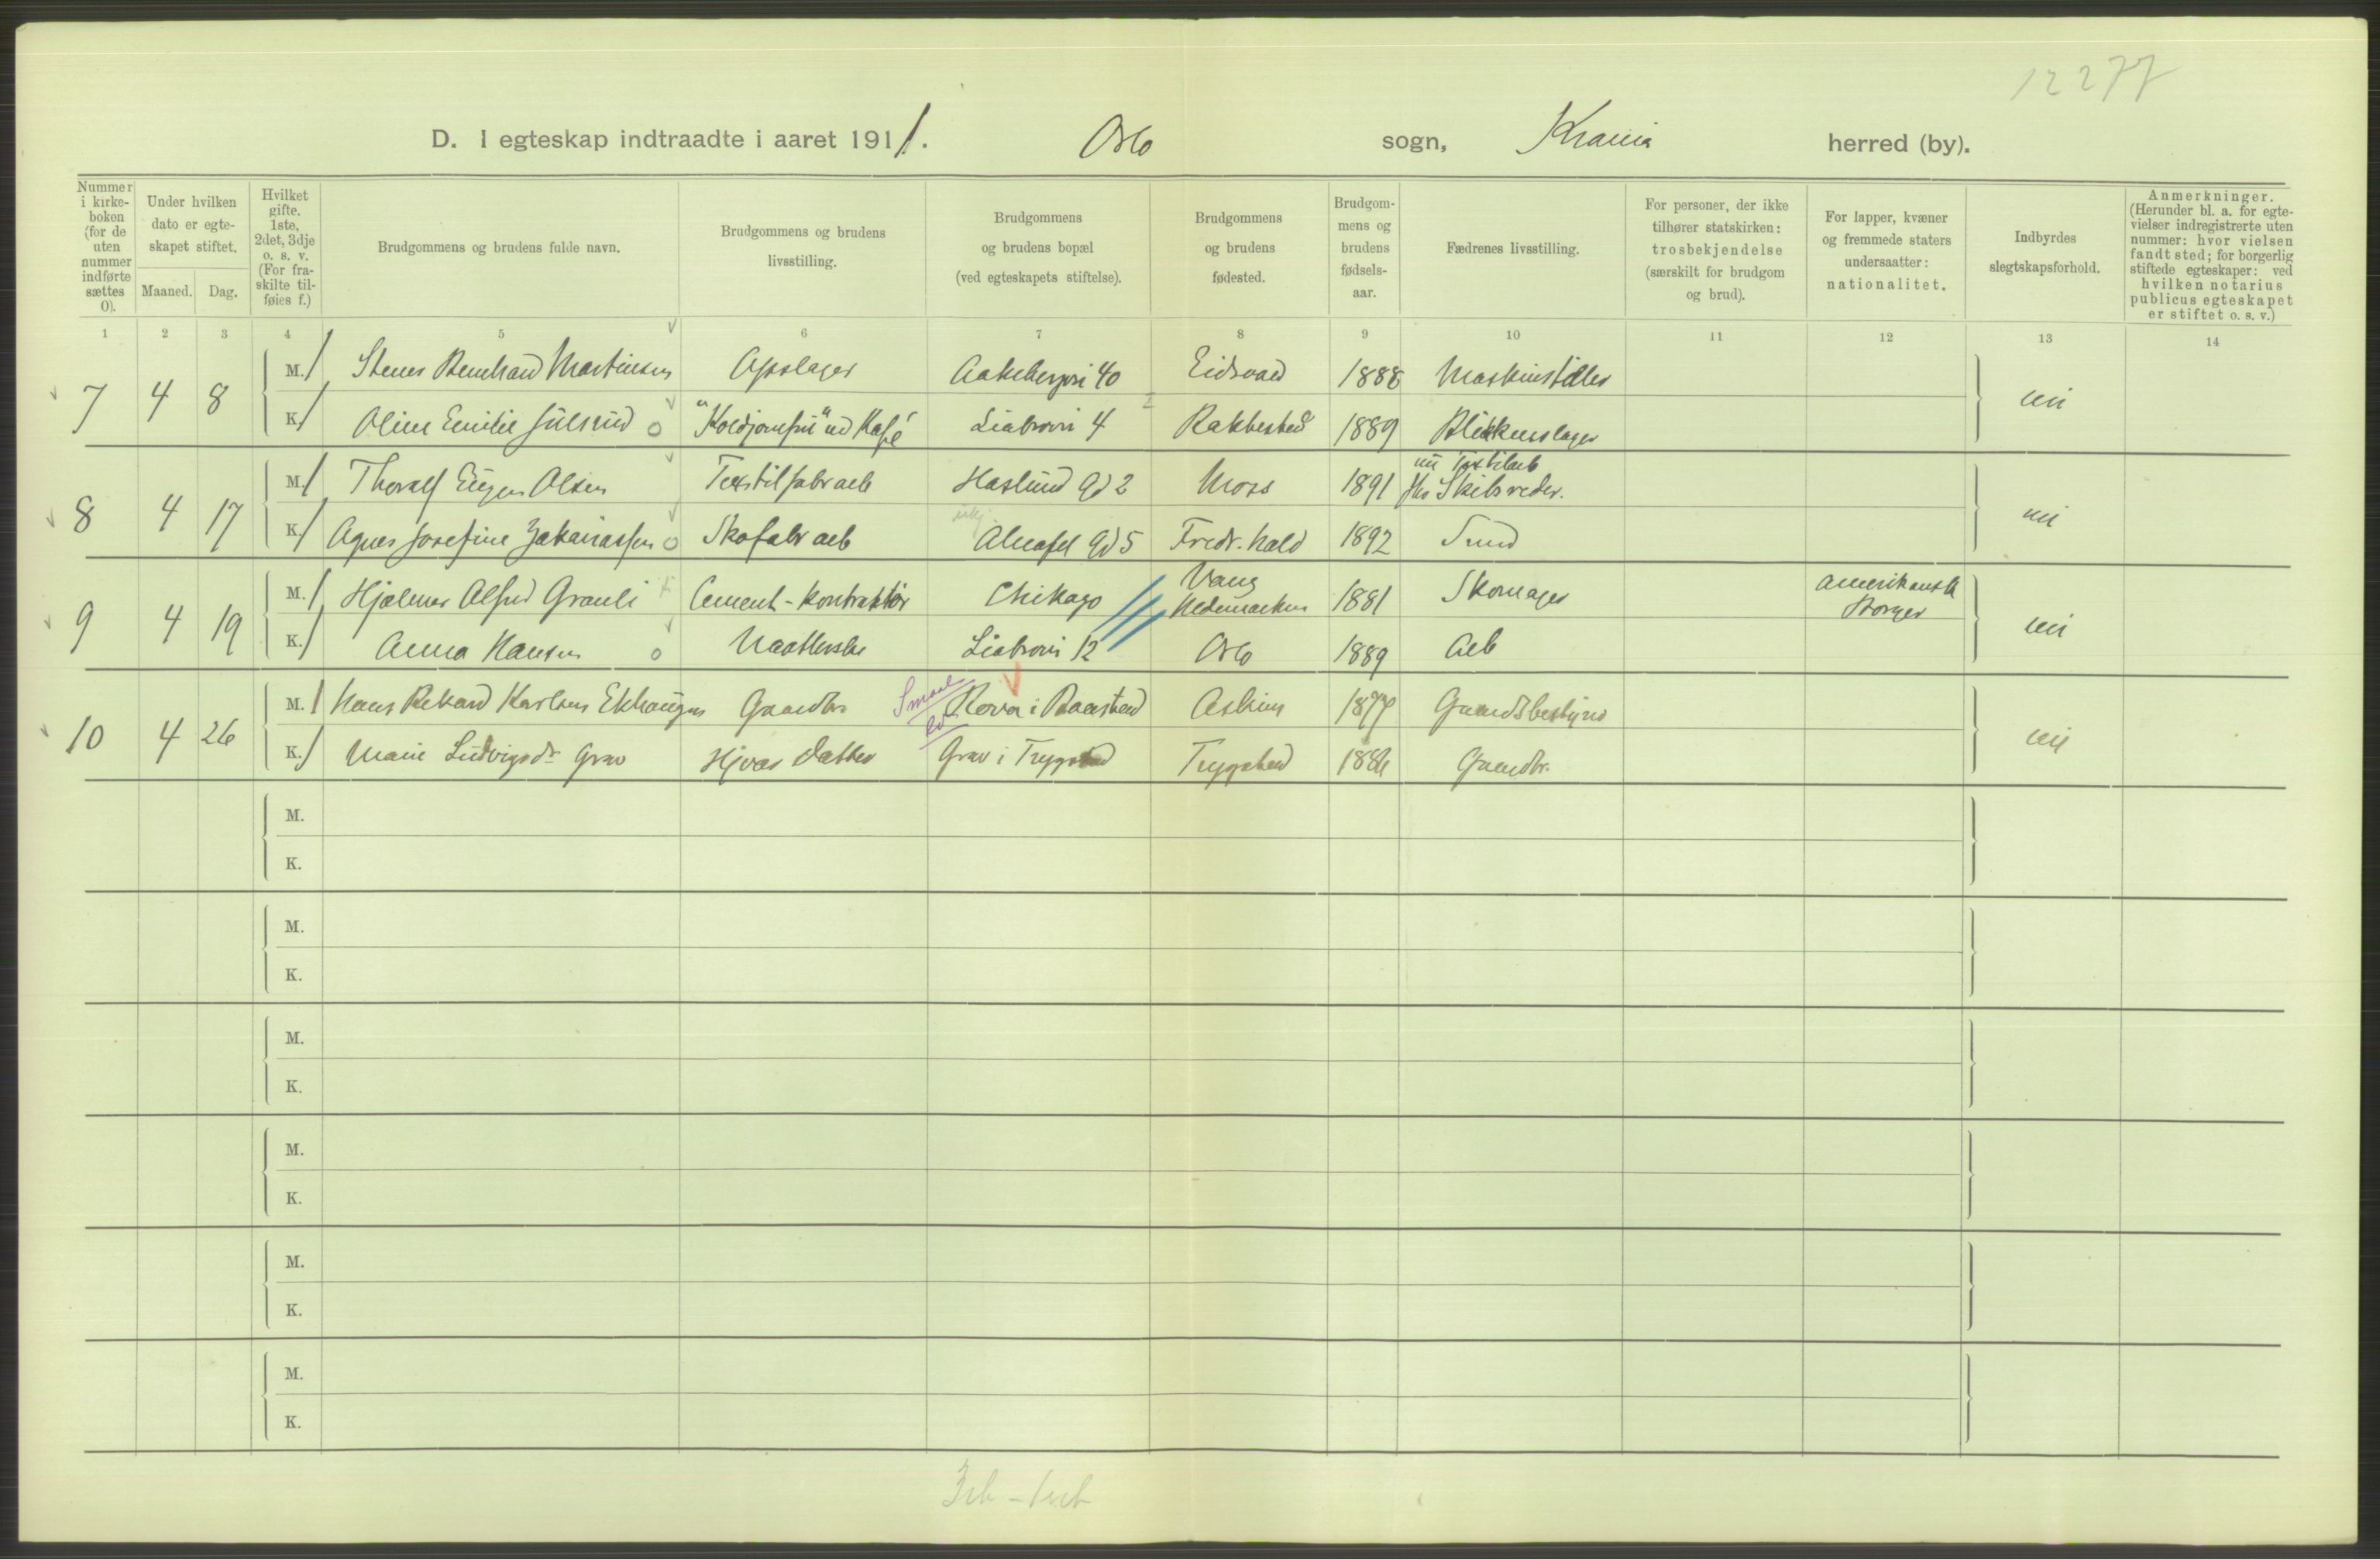 12277
D. I egteskap indtraadte i aaret 1911. Oslo sogn, Krania herred (by).
Nummer i kirkeboken (for de uten nummer indførte sættes 0).
Under hvilken dato er egteskapet stiftet.
Maaned. Dag.
Hvilket gifte. 1ste, 2det, 3dje o. s. v. (For fraskilte tilføies f.)
Brudgommens og brudens fulde navn.
Brudgommens og brudens livsstilling.
Brudgommens og brudens bopæl (ved egteskapets stiftelse).
Brudgommens og brudens fødested.
Brudgommens og brudens fødselsaar.
Fædrenes livsstilling.
For personer, der ikke tilhører statskirken: trosbekjendelse (særskilt for brudgom og brud).
For lapper, kvæner og fremmede staters undersaatter: nationalitet.
Indbyrdes slegtskapsforhold.
Anmerkninger. (Herunder bl. a. for egtevielser indregistrerte uten nummer: hvor vielsen fandt sted; for borgerlig stiftede egteskaper: ved hvilken notarius publicus egteskapet er stiftet o. s. v.)
1 2 3 4 5 6 7 8 9 10 11 12 13 14
7 4 8 M. / Stener Bernhard Martinsen Opslager Aakebergvei 40 Eidsvold 1888 Maskinstiller nei
K. / Oline Emilie Julsrud o "Koldjomfru" ved Kafé Liabrovei 4 Rakkestad 1889 Blikkenslager
8 4 17 M. / Thoralf Eugen Olsen Textilfabr arb Haslund Gd 2 Moss 1891 nu Textilarb fhv Skibsreder. nei
K. / Agnes Josefine Zakariassen o Skofabr arb Alnafet Gd 5 Fredr.hald 1892 Smed
9 4 19 M. / Hjalmar Alfred Grauli Cement-kontraktør Chikago Vang Hedemarken 1881 Skomager amerikansk Borger nei
K. / Anna Hansen o Naatlerske Liabrovei 12 Oslo 1889 Arb
10 4 26 M. / Hans Rikard Karlsen Ekhaugen Gaardbr Smaal Rova i Baastad Askim 1877 Gaardsbestyrer nei
K. / Marie Ludvigsdr Grav Hjvær datter Grav i Trygstad Trygstad 1886 Gaardbr.
M.
K.
M.
K.
M.
K.
M.
K.
M.
K.
M.
K.